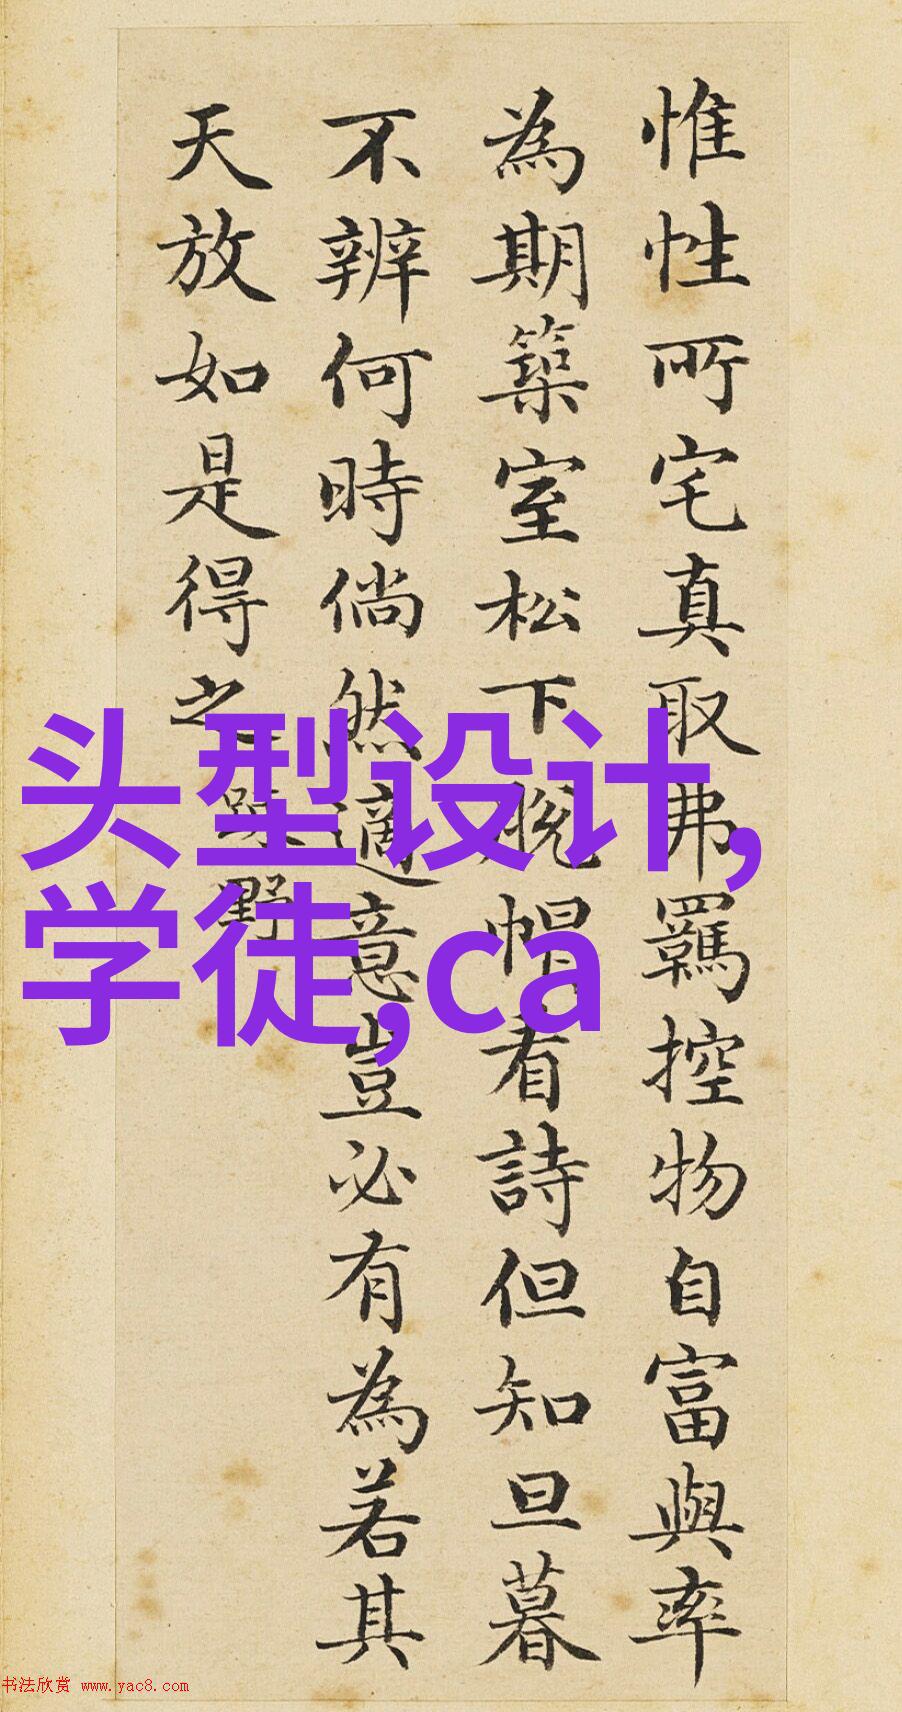 惟性所宅真取弗羈控物自富與率
為期築室松下脫帽看詩但知旦暮
不辨何時倘然適意豈必有為若其
天放如是得之
野
头型设计,
学徒,ca
书法欣赏 www.yac8.com